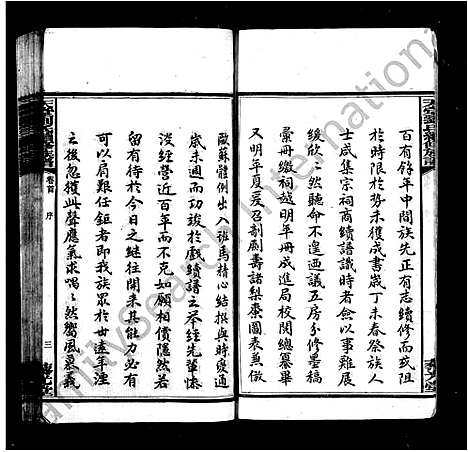 百有餘年中間族先正有志續修而或阻
於時限於勢未獲成書歲丁未春祭族人
士咸集宗祠商續譜識時者僉以事難展
緩欣然聽命不遑迺議五房分修墨稿
彙冊繳祠越明年冊成進局校閱總纂畢
又明年夏爰召剞劂壽諸梨棗圖表兼倣
歐蘇體例出入班馬精心結撰與時變通
歲未週而功竣於戲續譜之舉經先輩惨
沒經營近百年而不克如願相償隱然若
留有待於今日之繼往開來其能力必有
可以肩艱任鉅者即我族眾於世遠年湮
之後忽獲與聲應氣求喁喁然嚮風慕義
卷首 序
三
FamilySearch International